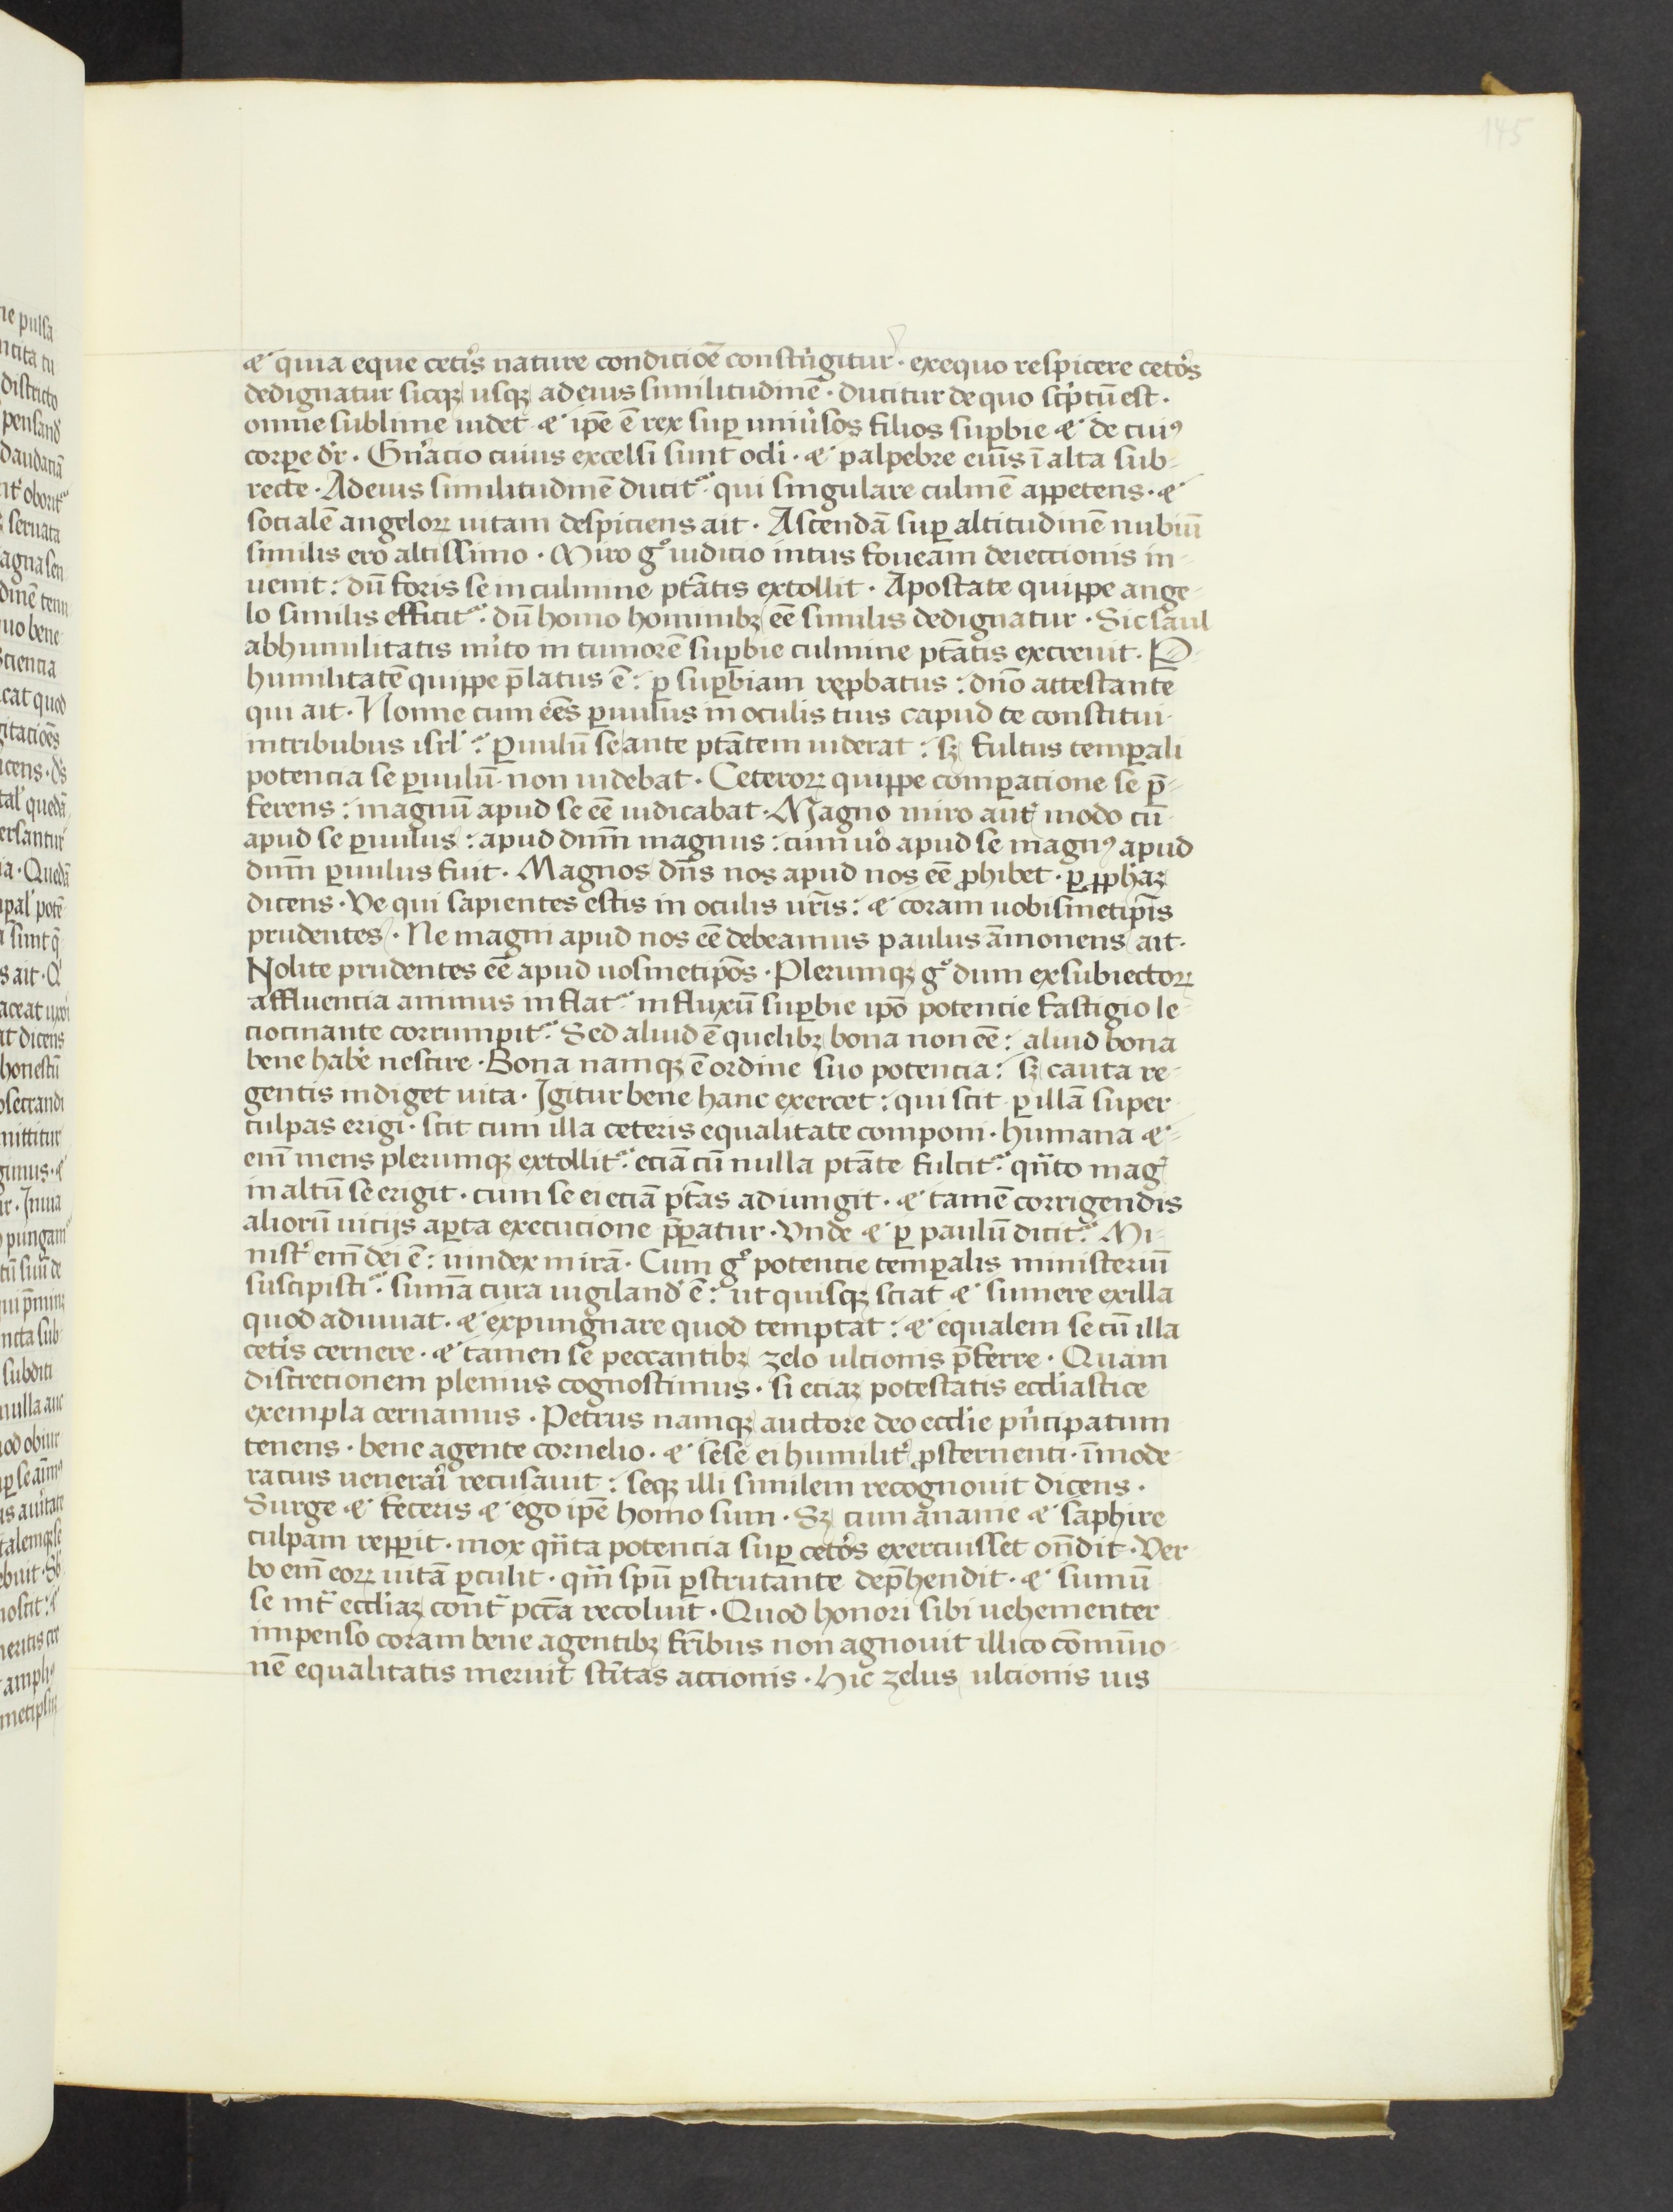 145
⁊ quia eque ceti᷒s nature condicio̅e constri̅gitur · exequo respicere cet᷒os
dedignatur sicqꝫ usqꝫ ad eius similitudine̅ · ducitur de quo sc̅ptu̅ est ·
omne sublime uidet ⁊ ip̅e e̅ rex suꝑ uniu̓sos filios suꝑbie ⁊ de cuiꝰ
corꝑe dr̅ · Gn̅acio cuius excelsi sunt ocl̅i · ⁊ palpebre eius i̅ alta sub-
recte · Ad eius similitudine̅ ducit᷑ · qui singulare culme̅ appetens · ⁊
sociale̅ angeloꝝ uitam despiciens ait · Ascenda̅ suꝑ altitudine̅ nubiu̅
similis ero altissimo · Miro gͦ iudicio intus foueam deiectionis in-
uenit : du̅ foris se in culmine pt̅atis extollit · Apostate quippe ange-
lo similis efficit᷑ · du̅ homo hominibꝫ ee̅ similis dedignatur · Sic saul
ab humilitatis mi̓to in tumore̅ suꝑbie culmine pt̅atis excreuit · P-
humilitate̅ quippe p̅latus e̅ : ꝑ suꝑbiam reꝓbatus : dn̅o attestante
qui ait · Nonne cum ee̅s ꝑuulus in oculis tuis capud te constitui
in tribubus isrl̅ : Ꝑuulu̅ se ante pt̅atem uiderat : sꝫ fultus temꝑali
potencia se ꝑuulu̅ non uidebat · Ceteroꝝ quippe comꝑacione se p̅-
ferens : magnu̅ apud se ee̅ iudicabat · Magno miro aut̅ modo cu̅
apud se ꝑuulus : apud dnm̅ magnus : cum u̓o apud se magnꝰ apud
dnm̅ ꝑuulus fuit · Magnos dn̅s nos apud nos ee̅ ꝓhibet · ꝑ ꝓph̅aꝫ
dicens · Ve qui sapientes estis in oculis ur̅is : ⁊ coram uobismetip̅is
prudentes · Ne magni apud nos ee̅ debeamus paulus a̅monens ait ·
Nolite prudentes ee̅ apud uosmetip̅os · Plerumqꝫ gͦ dum ex subiectoꝝ
affluencia animus inflat᷑ in fluxu̅ suꝑbie ip̅o potencie fastigio le-
nocinante corrumpit᷑ · Sed aliud e̅ quelibꝫ bona non ee̅ : aliud bona
bene hab̓e nescire · Bona namqꝫ e̅ ordine suo potencia : sꝫ cauta re-
gentis indiget uita · Igitur bene hanc exercet : qui scit ꝑ illa̅ super
culpas erigi · scit cum illa ceteris equalitate componi · humana ⁊-
eni̅ mens plerumqꝫ extollit᷑ · ecia̅ cu̅ nulla pt̅ate fulcit᷑ · qu̅to mag̓
in altu̅ se erigit · cum se ei ecia̅ pt̅as adiungit · ⁊ tame̅ corrigendis
alioru̅ uicijs aꝑta execucione p̅ꝑatur · Vnde ⁊ ꝑ paulu̅ dicit᷑ · Mi-
nist̓ eni̅ dei e̅ : uindex in ira̅ · Cum gͦ potencie temꝑalis ministeriu̅
suscipit᷑ · suma̅ cura uigiland̓ e̅ : ut quisqꝫ sciat ⁊ sumere ex illa
quod adiuuat · ⁊ expungnare quod temptat : ⁊ equalem se cu̅ illa
ceti᷒s cernere · ⁊ tamen se peccantibꝫ zelo ultionis p̅ferre · Quam
discretionem plenius cognoscimus · si eciaꝫ potestatis eccl̅iastice
exempla cernamus · Petrus namqꝫ auctore deo eccl̅ie pri̅cipatum
tenens · bene agente cornelio · ⁊ sese ei humilit̓ ꝓsternenti · i̅mode-
ratius uenerari̅ recusauit : seqꝫ illi similem recognouit dicens ·
Surge ⁊ feceris ⁊ ego ip̅e homo sum · Sꝫ cum ananie ⁊ saphire
culpam reꝑpit · mox qu̅ta potencia suꝑ cet᷒os exercuisset on̅dit · Ver-
bo eni̅ eoꝝ uita̅ ꝑculit · qu̅m spu̅ ꝑscrutante dep̅hendit · ⁊ sumu̅
se int̓ eccl̅iaꝫ cont̓ pcc̅a recoluit · Quod honori sibi uehementer
impenso coram bene agentibꝫ fr̅ibus non agnouit illico co̅mu̅io-
ne̅ equalitatis meruit sc̅itas accionis · Hic zelus ultionis ius